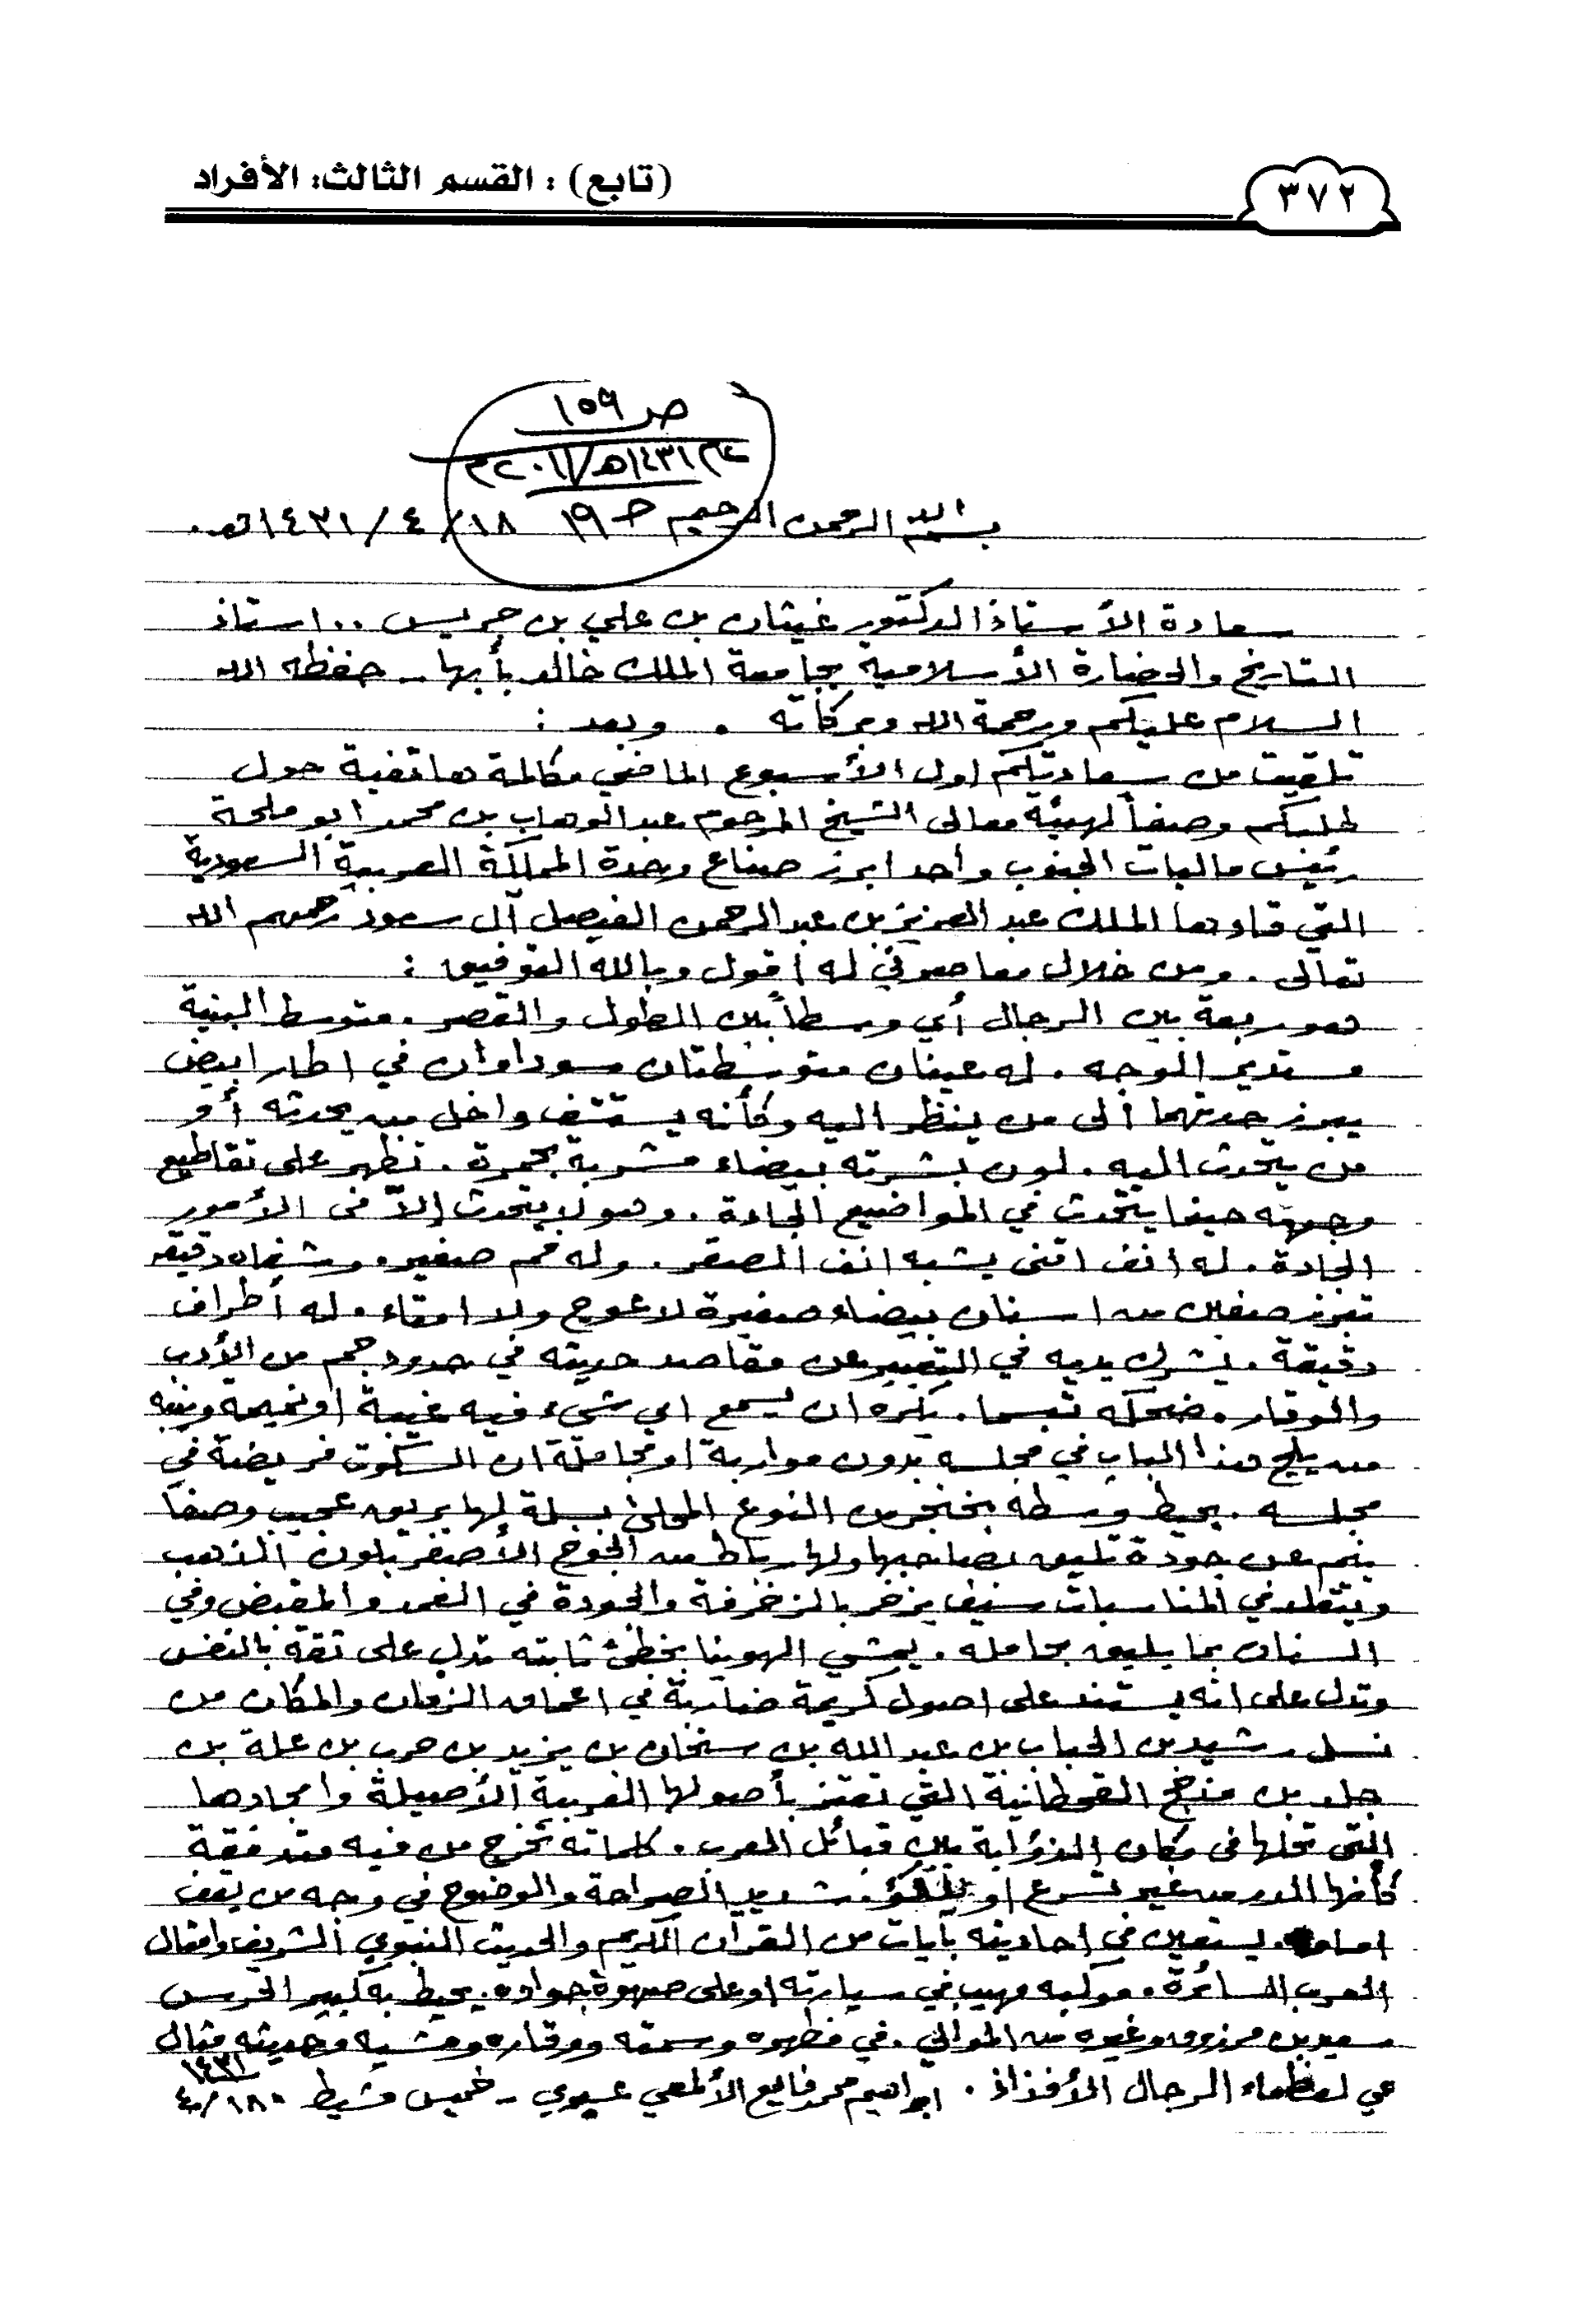 ٣٧٢
(تابع) : القسم الثالث: الأفراد
ص ١٥٩
١٤٣١هـ/٢٠١١م
بسم الله الرحمن الرحيم حـ ١٩ ١٨/٤/١٤٣١هـ.
سعادة الأستاذ الدكتور غيثان بن علي بن جريس .. استاذ
التاريخ والحضارة الأسلامية بجامعة الملك خالد بأبها - حفظه الله
السلام عليكم ورحمة الله وبركاته . وبعد :
تلقيت من سعادتكم اول الأسبوع الماضي مكالمة هاتفية حول
طلبكم وصفاً لهيئة معالى الشيخ المرحوم عبدالوهاب بن محمد ابو ملحة
رئيس ماليات الجنوب وأحد ابرز صناع وحدة المملكة العربية السعودية
التي قادها الملك عبد العزيز بن عبدالرحمن الفيصل آل سعود رحمهم الله
تعالى . ومن خلال معاصرتي له أقول وبالله التوفيق :
هو ربعة بين الرجال أي وسطاً بين الطول والقصر . متوسط البنية
مستدير الوجه . له عينان متوسطتان سوداوان في اطار ابيض
يبرز حدتهما ألى من ينظر اليه وكأنه يستشف داخل من يحدثه أو
من يتحدث اليه . لون بشرته بيضاء مشربة بحمرة . تظهر على تقاطيع
وجهه حينما يتحدث في المواضيع الجادة . وهو لا يتحدث إلاّ فى الأمور
الجادة . له انف اقنى يشبه انف الصقر . وله فم صغير . وشفاه دقيقه
تفرز صفين من اسنان بيضاء صغيرة لا عوج ولا امتاء . له أطراف
دقيقة . يشرك يديه في التعبير عن مقاصد حديثه في حدود جم من الأدب
والوقار . ضحكه تبسما . يكره ان يسمع اي شيء فيه غيبة او نميمه وينبه
من يلج هذا الباب في مجلسه بدون مواربة او مجاملة ان السكوت فريضة في
مجلسه . يحيط وسطه بخنجر من النوع المحلئ بسلة لها بريق عجيب وصفا
ينم عن جودة تليق بصاحبها ولها رباط من الجوخ الأصفر بلون الذهب
ويتقلد في المناسبات سيف يزخر بالزخرفة والجودة في الغمد والمقبض وفي
السنان بما يليق بحامله . يمشي الهوينا بخطئ ثابته تدل على ثقة بالنفس
وتدل على انه يستند على اصول كريمة ضاربة في اعماق الزمان والمكان من
نسل رشيد بن الحباب بن عبد الله بن سنحان بن يزيد بن حرب بن علة بن
جلد بن مذحج القحطانية التي تعتز بأصولها العربية الأصيلة وامجادها
التى تحلها فى مكان الذؤابة بين قبائل العرب . كلماته تخرج من فيه متدفقة
كأنها الدرر من غير تسرع او . شديد الصراحة والوضوح في وجه من يقف
امامه . يستعين في احاديثه بآيات من القرآن الكريم والحديث النبوي الشريف وامثال
العرب السائرة . موكبه مهيب في سيارته او على صهوة جواده . يحيط به كبير الحرس
سعيد بن مرزوق وغيره من الموالي . في مظهره وسمته ووقاره ومشيه وحديثه مثال
حي لعظماء الرجال الأفذاذ . ابراهيم محمد فايع الألمعي عسيري - خميس مشيط ١٨/٤/١٤٣١